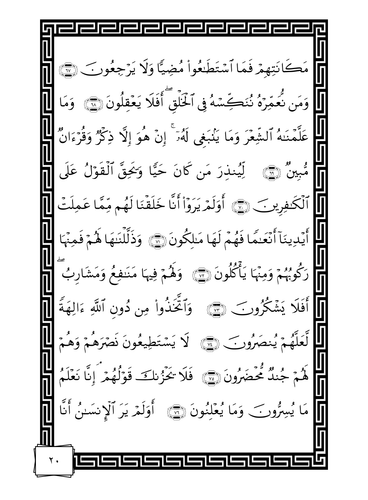 مَكَانَتِهِمْ فَمَا ٱسْتَطَـٰعُوا۟ مُضِيًّا وَلَا يَرْجِعُونَ ﴿٦٧﴾
وَمَن نُّعَمِّرْهُ نُنَكِّسْهُ فِى ٱلْخَلْقِ ۖ أَفَلَا يَعْقِلُونَ ﴿٦٨﴾ وَمَا
عَلَّمْنَـٰهُ ٱلشِّعْرَ وَمَا يَنۢبَغِى لَهُۥٓ ۚ إِنْ هُوَ إِلَّا ذِكْرٌ وَقُرْءَانٌ
مُّبِينٌ ﴿٦٩﴾ لِّيُنذِرَ مَن كَانَ حَيًّا وَيَحِقَّ ٱلْقَوْلُ عَلَى
ٱلْكَـٰفِرِينَ ﴿٧٠﴾ أَوَلَمْ يَرَوْا۟ أَنَّا خَلَقْنَا لَهُم مِّمَّا عَمِلَتْ
أَيْدِينَآ أَنْعَـٰمًا فَهُمْ لَهَا مَـٰلِكُونَ ﴿٧١﴾ وَذَلَّلْنَـٰهَا لَهُمْ فَمِنْهَا
رَكُوبُهُمْ وَمِنْهَا يَأْكُلُونَ ﴿٧٢﴾ وَلَهُمْ فِيهَا مَنَـٰفِعُ وَمَشَارِبُ ۖ
أَفَلَا يَشْكُرُونَ ﴿٧٣﴾ وَٱتَّخَذُوا۟ مِن دُونِ ٱللَّهِ ءَالِهَةً
لَّعَلَّهُمْ يُنصَرُونَ ﴿٧٤﴾ لَا يَسْتَطِيعُونَ نَصْرَهُمْ وَهُمْ
لَهُمْ جُندٌ مُّحْضَرُونَ ﴿٧٥﴾ فَلَا يَحْزُنكَ قَوْلُهُمْ ۘ إِنَّا نَعْلَمُ
مَا يُسِرُّونَ وَمَا يُعْلِنُونَ ﴿٧٦﴾ أَوَلَمْ يَرَ ٱلْإِنسَـٰنُ أَنَّا
٢٠